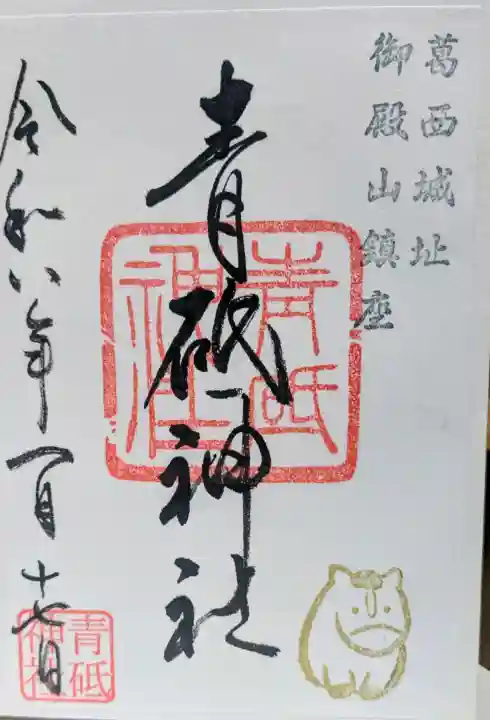 葛西城址
御殿山鎮座
青砥神社
青砥
神社
令和八年一月十七日
青砥
神社